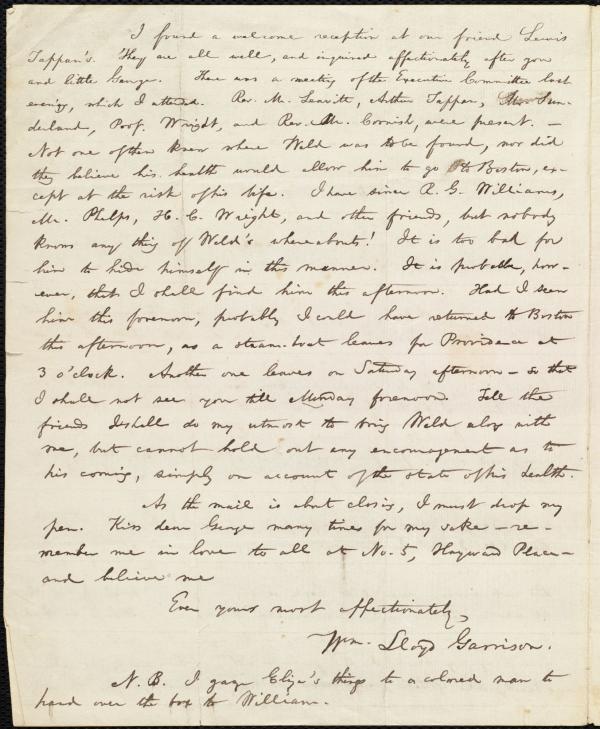 I found a welcome reception at our friend Lewis
Tappan's. They are all well, and inquired affectionately after you
and little George. There was a meeting of the Executive Committee last
evening, which I attended. Rev. Mr. Leavitt, Arthur Tappan, Mr. Sun-
derland, Prof. Wright, and Rev. Mr. Cornish, were present. —
Not one of them knew where Weld was to be found, nor did
they believe his health would allow him to go to Boston, ex-
cept at the risk of his life. I have since R. G. Williams,
Mr. Phelps, H. C. Wright, and other friends, but nobody
knows any thing of Weld's whereabouts! It is too bad for
him to hide himself in this manner. It is probable, how-
ever, that I shall find him this afternoon. Had I seen
him this forenoon, probably I could have returned to Boston
this afternoon, as a steam-boat leaves for Providence at
3 o'clock. Another one leaves on Saturday afternoon — so that
I shall not see you till Monday forenoon. Tell the
friends I shall do my utmost to bring Weld along with
me, but cannot hold out any encouragement as to
his coming, simply on account of the state of his health.
As the mail is about closing, I must drop my
pen. Kiss dear George many times for my sake — re-
member me in love to all at No. 5, Hayward Place —
and believe me
Ever yours most affectionately,
Wm. Lloyd Garrison.
N. B. I gave Eliza's things to a colored man to
hand over the box to William.